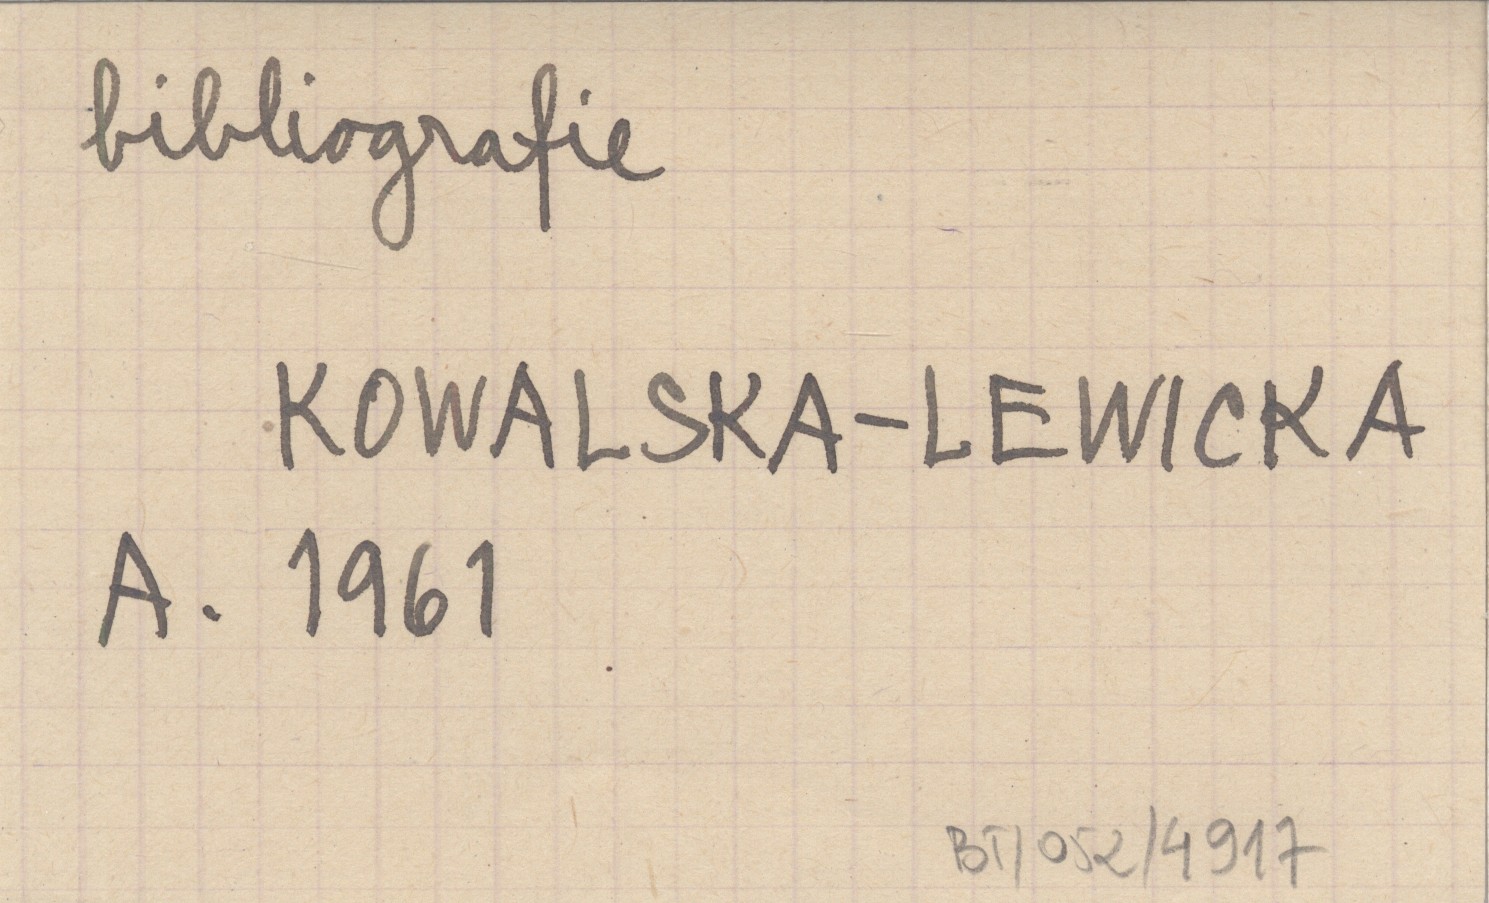 bibliografie
KOWALSKA-LEWICKA
A. 1961
BT/052/4917